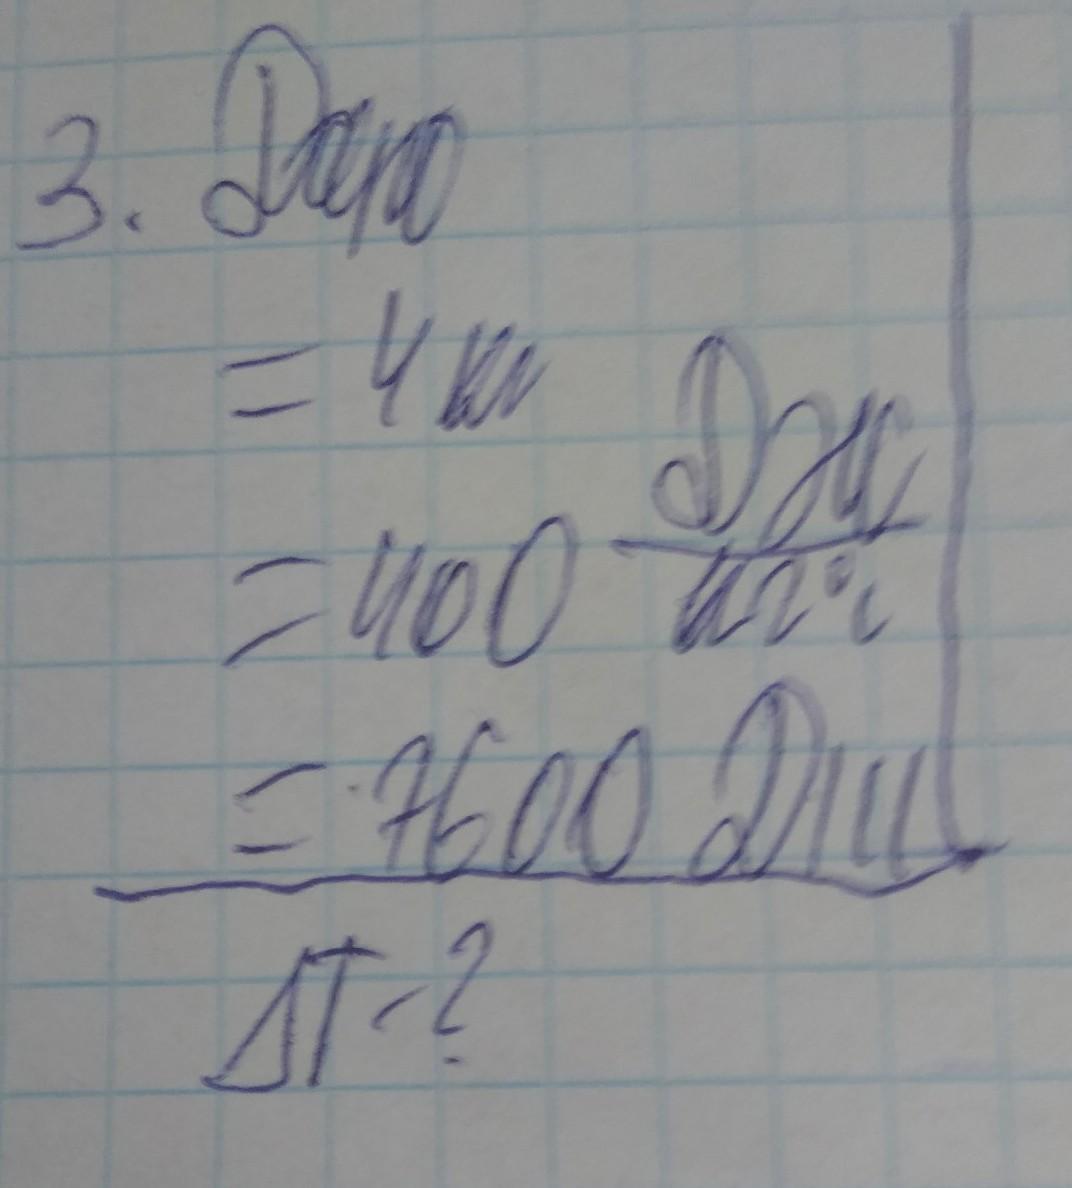 3. Дано
= 4 кг
= 400 Дж
кг°с
= 7600 Дж
ΔT - ?